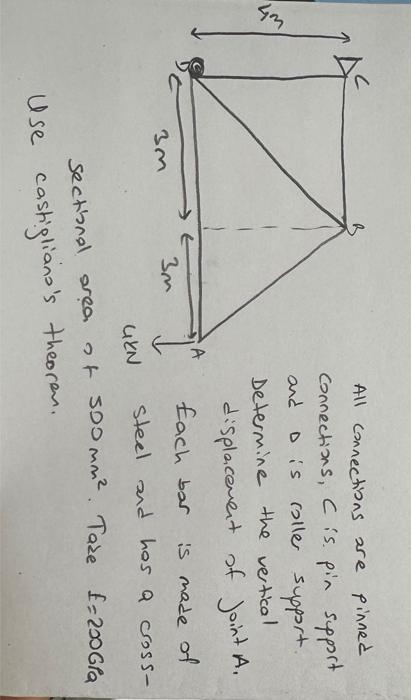 All connections are pinned
connections, C is pin support
and D is roller support.
Determine the vertical
displacement of joint A.
Each bar is made of
steel and has a cross-
sectional area of 500 mm². Take E=200GPa
Use castigliano's theorem.
4m
C
B
D
3m
3m
A
4kN